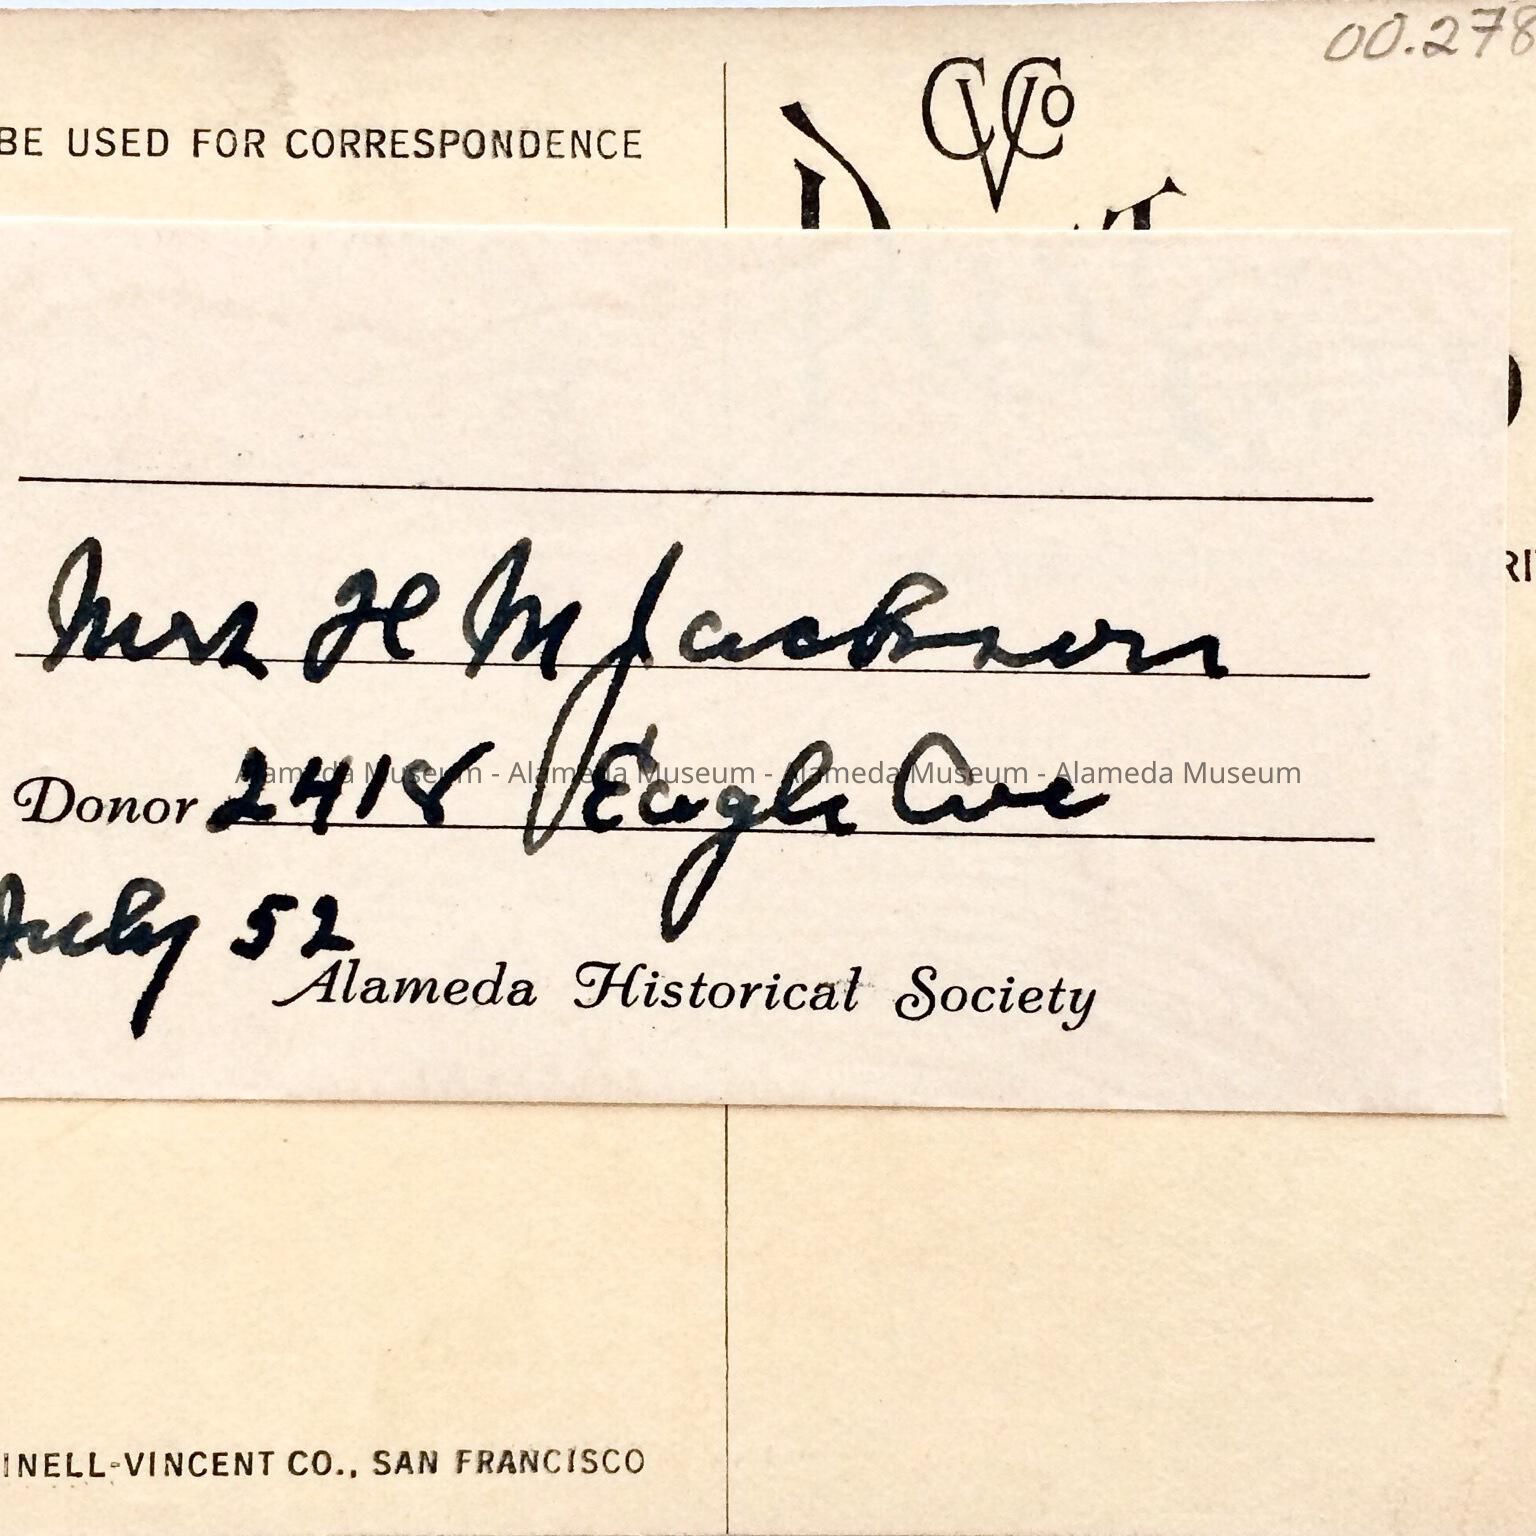 00.278
CVCo
BE USED FOR CORRESPONDENCE
Mrs H M Jackson
Donor 2418 Eagle Ave
Alameda Museum - Alameda Museum - Alameda Museum - Alameda Museum
July 52
Alameda Historical Society
INELL-VINCENT CO., SAN FRANCISCO